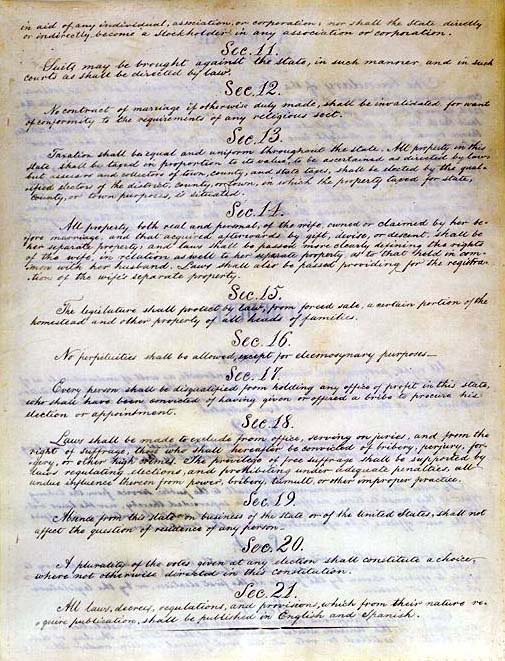 in aid of any individual, association, or corporation; nor shall the state directly
or indirectly become a stockholder in any association or corporation.
Sec. 11.
Suits may be brought against the state, in such manner and in such
courts as shall be directed by law.
Sec. 12.
No contract of marriage if otherwise duly made, shall be invalidated for want
of conformity to the requirements of any religious sect.
Sec. 13
Taxation shall be equal and uniform throughout the state. All property in this
state shall be taxed in proportion to its value, to be ascertained as directed by law;
but assessors and collectors of town, county, and state taxes, shall be elected by the qual-
ified electors of the district, county, or town, in which the property taxed for state,
county, or town purposes, is situated.
Sec. 14.
All property, both real and personal, of the wife, owned or claimed by her be-
fore marriage, and that acquired afterwards by gift, devise, or descent, shall be
her separate property; and laws shall be passed more clearly defining the rights
of the wife, in relation as well to her separate property as to that held in com-
mon with her husband. Laws shall also be passed providing for the registra-
tion of the wife's separate property.
Sec. 15.
The legislature shall protect by law, from forced sale, a certain portion of the
homestead and other property of all heads of families.
Sec. 16.
No perpetuities shall be allowed, except for eleemosynary purposes—
Sec. 17.
Every person shall be disqualified from holding any office of profit in this state,
who shall have been convicted of having given or offered a bribe to procure his
election or appointment.
Sec. 18.
Laws shall be made to exclude from office, serving on juries, and from the
right of suffrage, those who shall hereafter be convicted of bribery, perjury, for-
gery, or other high crimes. The privilege of free suffrage shall be supported by
laws regulating elections, and prohibiting under adequate penalties, all
undue influence thereon from power, bribery, tumult, or other improper practice.
Sec. 19
Absence from this state on business of the state or of the United States, shall not
affect the question of residence of any person—
Sec. 20.
A plurality of the votes given at any election shall constitute a choice,
where not otherwise directed in this constitution.
Sec. 21.
All laws, decrees, regulations, and provisions, which from their nature re-
quire publication, shall be published in English and Spanish.